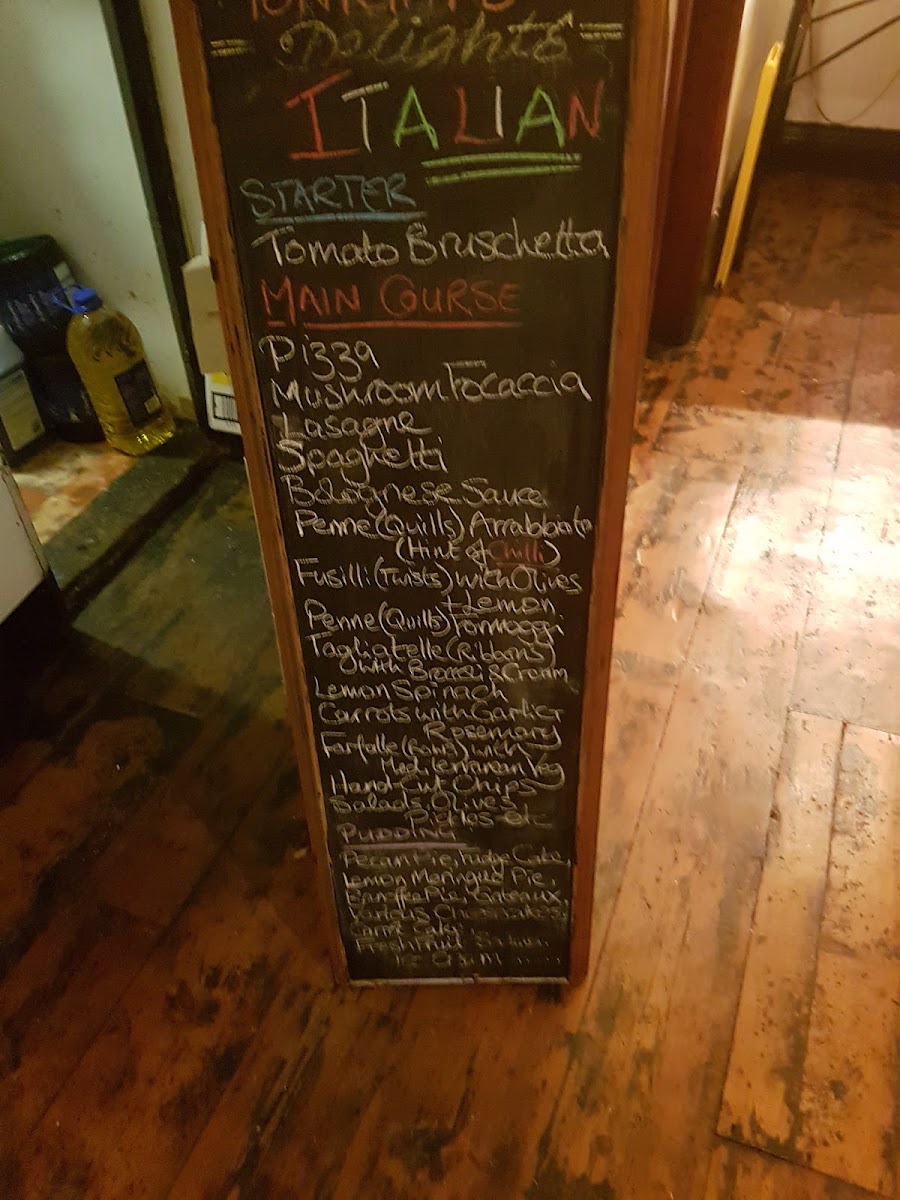 TONIGHT'S
Delights
ITALIAN
STARTER
Tomato Bruschetta
MAIN COURSE
Pizza
Mushroom Focaccia
Lasagne
Spaghetti
Bolognese Sauce
Penne (Quills) Arrabbiata
(Hint of Chilli)
Fusilli (Twists) with Olives
+ Lemon
Penne (Quills) Formaggi
Tagliatelle (Ribbons)
with Brocoli & Cream
Lemon Spinach
Carrots with Garlic +
Rosemary
Farfalle (Bows) with
Mediterranean Veg
Hand Cut Chips
Salads, Olives
Pickles etc
PUDDING
Pecan Pie, Fudge Cake,
Lemon Meringue Pie,
Banoffee Pie, Gateaux,
Various Cheesecakes,
Carrot Cake,
Fresh Fruit Salad
Ice Cream ......